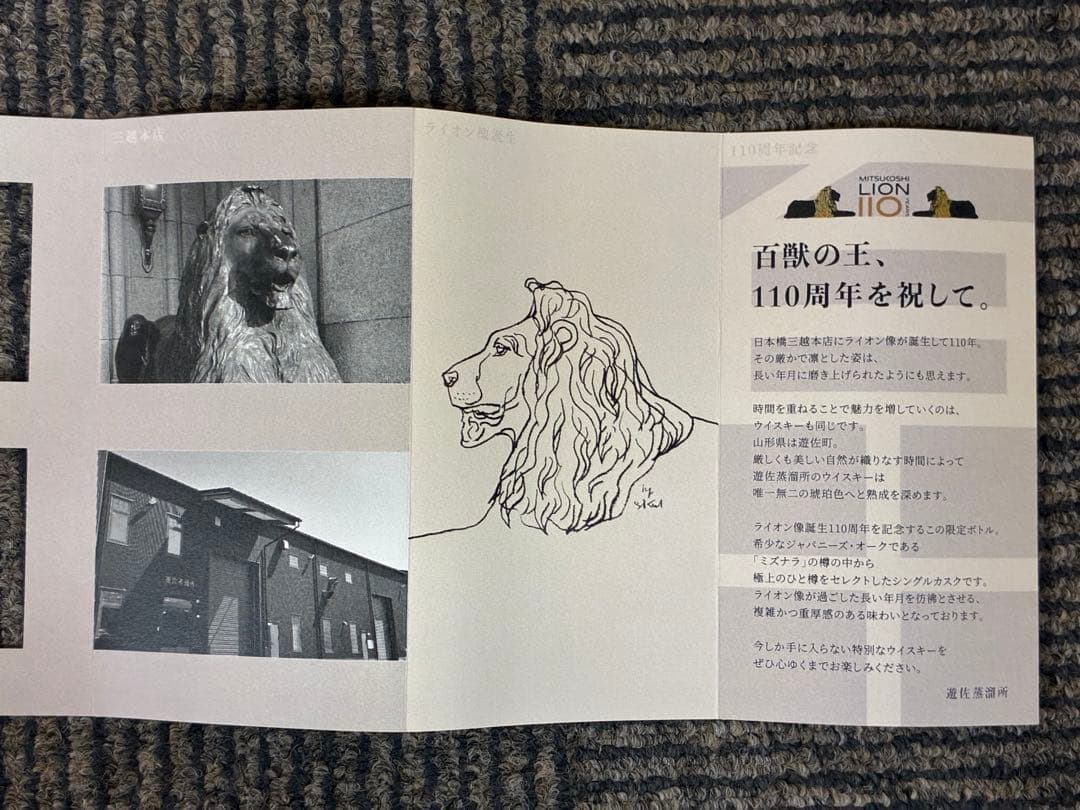 三越本店
ライオン像誕生
by
110周年記念
MITSUKOSHI
LION
110
YEARS
百獣の王、
110周年を祝して。
日本橋三越本店にライオン像が誕生して110年。
その厳かで凛とした姿は、
長い年月に磨き上げられたようにも思えます。
時間を重ねることで魅力を増していくのは、
ウイスキーも同じです。
山形県は遊佐町。
厳しくも美しい自然が織りなす時間によって
遊佐蒸溜所のウイスキーは
唯一無二の琥珀色へと熟成を深めます。
ライオン像誕生110周年を記念するこの限定ボトル。
希少なジャパニーズ・オークである
「ミズナラ」の樽の中から
極上のひと樽をセレクトしたシングルカスクです。
ライオン像が過ごした長い年月を彷彿とさせる、
複雑かつ重厚感のある味わいとなっております。
今しか手に入らない特別なウイスキーを
ぜひ心ゆくまでお楽しみください。
遊佐蒸溜所